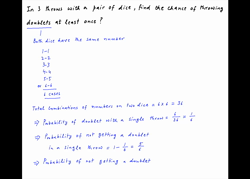 In 3 throws with a pair of dice, find the chance of throwing
doublets at least once ?
Both dice have the same number
1-1
2-2
3-3
4-4
5-5
6-6
6 cases
Total combinations of numbers on two dice = 6 x 6 = 36
⇒ Probability of doublet with a single throw = 6/36 = 1/6
⇒ Probability of not getting a doublet
in a single throw = 1 - 1/6 = 5/6
⇒ Probability of not getting a doublet